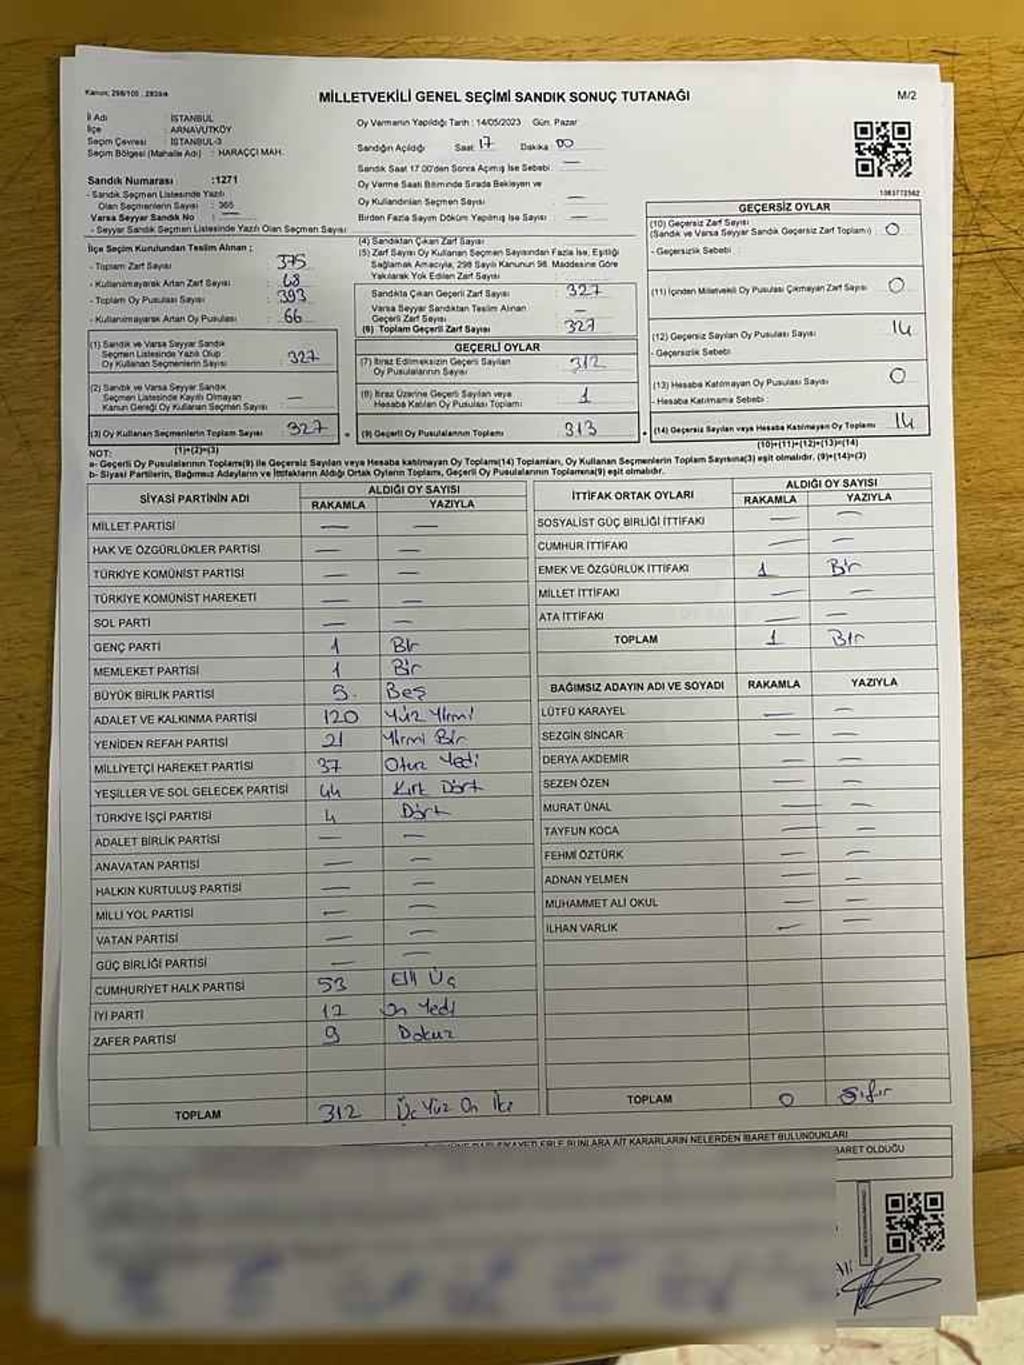 Kanun: 298/105 , 2839/4
MİLLETVEKİLİ GENEL SEÇİMİ SANDIK SONUÇ TUTANAĞI
M/2
İl Adı : İSTANBUL
İlçe : ARNAVUTKÖY
Seçim Çevresi : İSTANBUL-3
Seçim Bölgesi (Mahalle Adı) : HARAÇÇI MAH.
Oy Vermenin Yapıldığı Tarih : 14/05/2023 Gün: Pazar
Sandığın Açıldığı Saat 17 Dakika 00
Sandık Saat 17:00'den Sonra Açılmış İse Sebebi : —
Oy Verme Saati Bitiminde Sırada Bekleyen ve
Oy Kullandırılan Seçmen Sayısı : —
Birden Fazla Sayım Döküm Yapılmış İse Sayısı : —
Sandık Numarası :1271
- Sandık Seçmen Listesinde Yazılı
Olan Seçmenlerin Sayısı : 365
Varsa Seyyar Sandık No : —
- Seyyar Sandık Seçmen Listesinde Yazılı Olan Seçmen Sayısı
İlçe Seçim Kurulundan Teslim Alınan ;
- Toplam Zarf Sayısı : 375
- Kullanılmayarak Artan Zarf Sayısı : 48
- Toplam Oy Pusulası Sayısı : 393
- Kullanılmayarak Artan Oy Pusulası : 66
(1) Sandık ve Varsa Seyyar Sandık
Seçmen Listesinde Yazılı Olup
Oy Kullanan Seçmenlerin Sayısı : 327
(2) Sandık ve Varsa Seyyar Sandık
Seçmen Listesinde Kayıtlı Olmayan
Kanun Gereği Oy Kullanan Seçmen Sayısı : —
(3) Oy Kullanan Seçmenlerin Toplam Sayısı : 327
(1)+(2)=(3)
(4) Sandıktan Çıkan Zarf Sayısı
(5) Zarf Sayısı Oy Kullanan Seçmen Sayısından Fazla İse, Eşitliği
Sağlamak Amacıyla, 298 Sayılı Kanunun 98. Maddesine Göre
Yakılarak Yok Edilen Zarf Sayısı
Sandıkta Çıkan Geçerli Zarf Sayısı : 327
Varsa Seyyar Sandıktan Teslim Alınan
Geçerli Zarf Sayısı : —
(6) Toplam Geçerli Zarf Sayısı : 327
GEÇERLİ OYLAR
(7) İtiraz Edilmeksizin Geçerli Sayılan
Oy Pusulalarının Sayısı : 312
(8) İtiraz Üzerine Geçerli Sayılan veya
Hesaba Katılan Oy Pusulası Toplamı : 1
(9) Geçerli Oy Pusulalarının Toplamı : 313
1063772562
GEÇERSİZ OYLAR
(10) Geçersiz Zarf Sayısı
(Sandık ve Varsa Seyyar Sandık Geçersiz Zarf Toplamı) : 0
- Geçersizlik Sebebi :
(11) İçinden Milletvekili Oy Pusulası Çıkmayan Zarf Sayısı : 0
(12) Geçersiz Sayılan Oy Pusulası Sayısı : 14
- Geçersizlik Sebebi :
(13) Hesaba Katılmayan Oy Pusulası Sayısı : 0
- Hesaba Katılmama Sebebi :
(14) Geçersiz Sayılan veya Hesaba Katılmayan Oy Toplamı : 14
(10)+(11)+(12)+(13)=(14)
NOT:
a- Geçerli Oy Pusulalarının Toplamı(9) ile Geçersiz Sayılan veya Hesaba katılmayan Oy Toplamı(14) Toplamları, Oy Kullanan Seçmenlerin Toplam Sayısına(3) eşit olmalıdır. (9)+(14)=(3)
b- Siyasi Partilerin, Bağımsız Adayların ve İttifakların Aldığı Ortak Oyların Toplamı, Geçerli Oy Pusulalarının Toplamına(9) eşit olmalıdır.
SİYASİ PARTİNİN ADI ALDIĞI OY SAYISI
RAKAMLA YAZIYLA
MİLLET PARTİSİ — —
HAK VE ÖZGÜRLÜKLER PARTİSİ — —
TÜRKİYE KOMÜNİST PARTİSİ — —
TÜRKİYE KOMÜNİST HAREKETİ — —
SOL PARTİ — —
GENÇ PARTİ 1 Bir
MEMLEKET PARTİSİ 1 Bir
BÜYÜK BİRLİK PARTİSİ 5 Beş
ADALET VE KALKINMA PARTİSİ 120 Yüz Yirmi
YENİDEN REFAH PARTİSİ 21 Yirmi Bir
MİLLİYETÇİ HAREKET PARTİSİ 37 Otuz Yedi
YEŞİLLER VE SOL GELECEK PARTİSİ 44 Kırk Dört
TÜRKİYE İŞÇİ PARTİSİ 4 Dört
ADALET BİRLİK PARTİSİ — —
ANAVATAN PARTİSİ — —
HALKIN KURTULUŞ PARTİSİ — —
MİLLİ YOL PARTİSİ — —
VATAN PARTİSİ — —
GÜÇ BİRLİĞİ PARTİSİ — —
CUMHURİYET HALK PARTİSİ 53 Elli Üç
İYİ PARTİ 17 On Yedi
ZAFER PARTİSİ 9 Dokuz
TOPLAM 312 Üç Yüz On İki
İTTİFAK ORTAK OYLARI ALDIĞI OY SAYISI
RAKAMLA YAZIYLA
SOSYALİST GÜÇ BİRLİĞİ İTTİFAKI — —
CUMHUR İTTİFAKI — —
EMEK VE ÖZGÜRLÜK İTTİFAKI 1 Bir
MİLLET İTTİFAKI — —
ATA İTTİFAKI — —
TOPLAM 1 Bir
BAĞIMSIZ ADAYIN ADI VE SOYADI RAKAMLA YAZIYLA
LÜTFÜ KARAYEL — —
SEZGİN SİNCAR — —
DERYA AKDEMİR — —
SEZEN ÖZEN — —
MURAT ÜNAL — —
TAYFUN KOCA — —
FEHMİ ÖZTÜRK — —
ADNAN YELMEN — —
MUHAMMET ALİ OKUL — —
İLHAN VARLIK — —
TOPLAM 0 Sıfır
KARARLARIN NELERDEN İBARET BULUNDUKLARI
BARET OLDUĞU